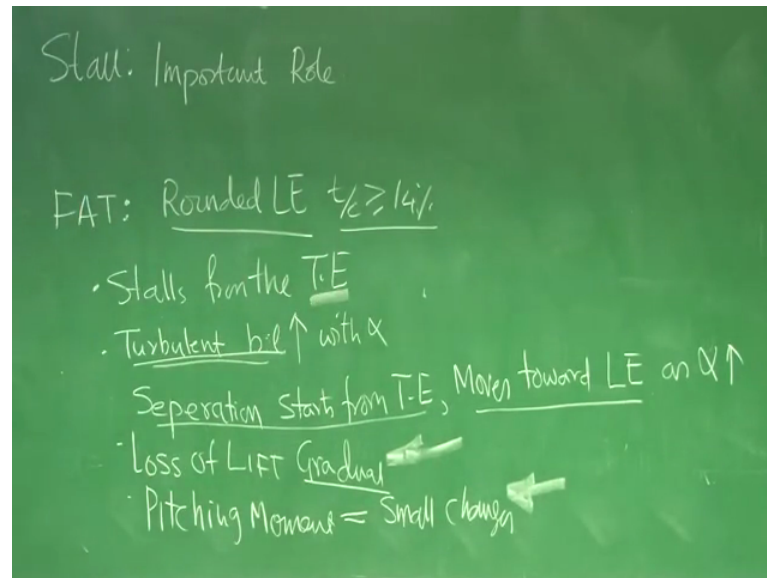 Stall: Important Role
FAT: Rounded LE t/c ≥ 14%
• Stalls from the T.E
• Turbulent b.l ↑ with α
Seperation starts from T.E, Moves toward LE as α ↑
• Loss of LIFT Gradual
• Pitching Moment = Small changes